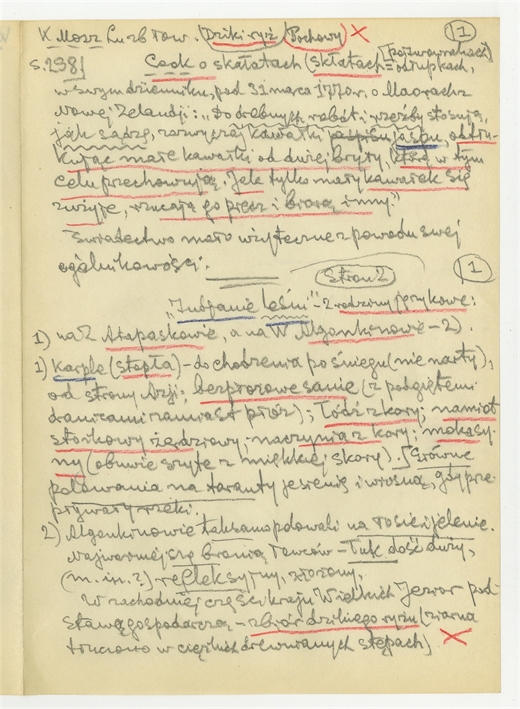 K Mosz Ludb Tow. (Dziki ryż) (Pochowy) X 1
s. 238] Cook o skałotach (skłatach = odłupkach,
w swym dzienniku, pod 31 marca 1770 r. o Maorach z
Nowej Zelandji: „Do drobnych robót i rzeźby stosują,
jak sądzę, zazwyczaj kawałki jaspisu, odłu-
kując małe kawałki od dużej bryły, którą w tym
celu przechowują. Jak tylko mały kawałek się
zużyje, rzucają go precz i biorą inny."
Świadectwo mało użyteczne z powodu swej
ogólnikowości.
Stron 2 1
„Indjanie leśni" – 2 rodziny językowe:
1) na Z Atapaskowie, a na W Algonkinowie – 2).
1) Karple (stopła) – do chodzenia po śniegu (nie narty),
od strony Azji; bezpłozowe sanie (z podgiętemi
dranicami zamiast płóz); łódź z kory; namiot
stożkowy żędziowy; naczynia z kory; mokasy-
ny (obuwie szyte z miękkiej skóry). Główne
polowania na karanty jesienią i wiosną, gdy prze-
pływały rzeki.
2) Algonkinowie tak samo polowali na łosie i jelenie.
Najważniejszą bronią łowców – łuk dość duży,
(m. in. ?) refleksyjny, złożony.
W zachodniej części kraju Wielkich Jezior pod-
stawą gospodarczą – zbiór dzikiego ryżu (ziarna
tłuczono w ciężkich drewnianych stępach) X